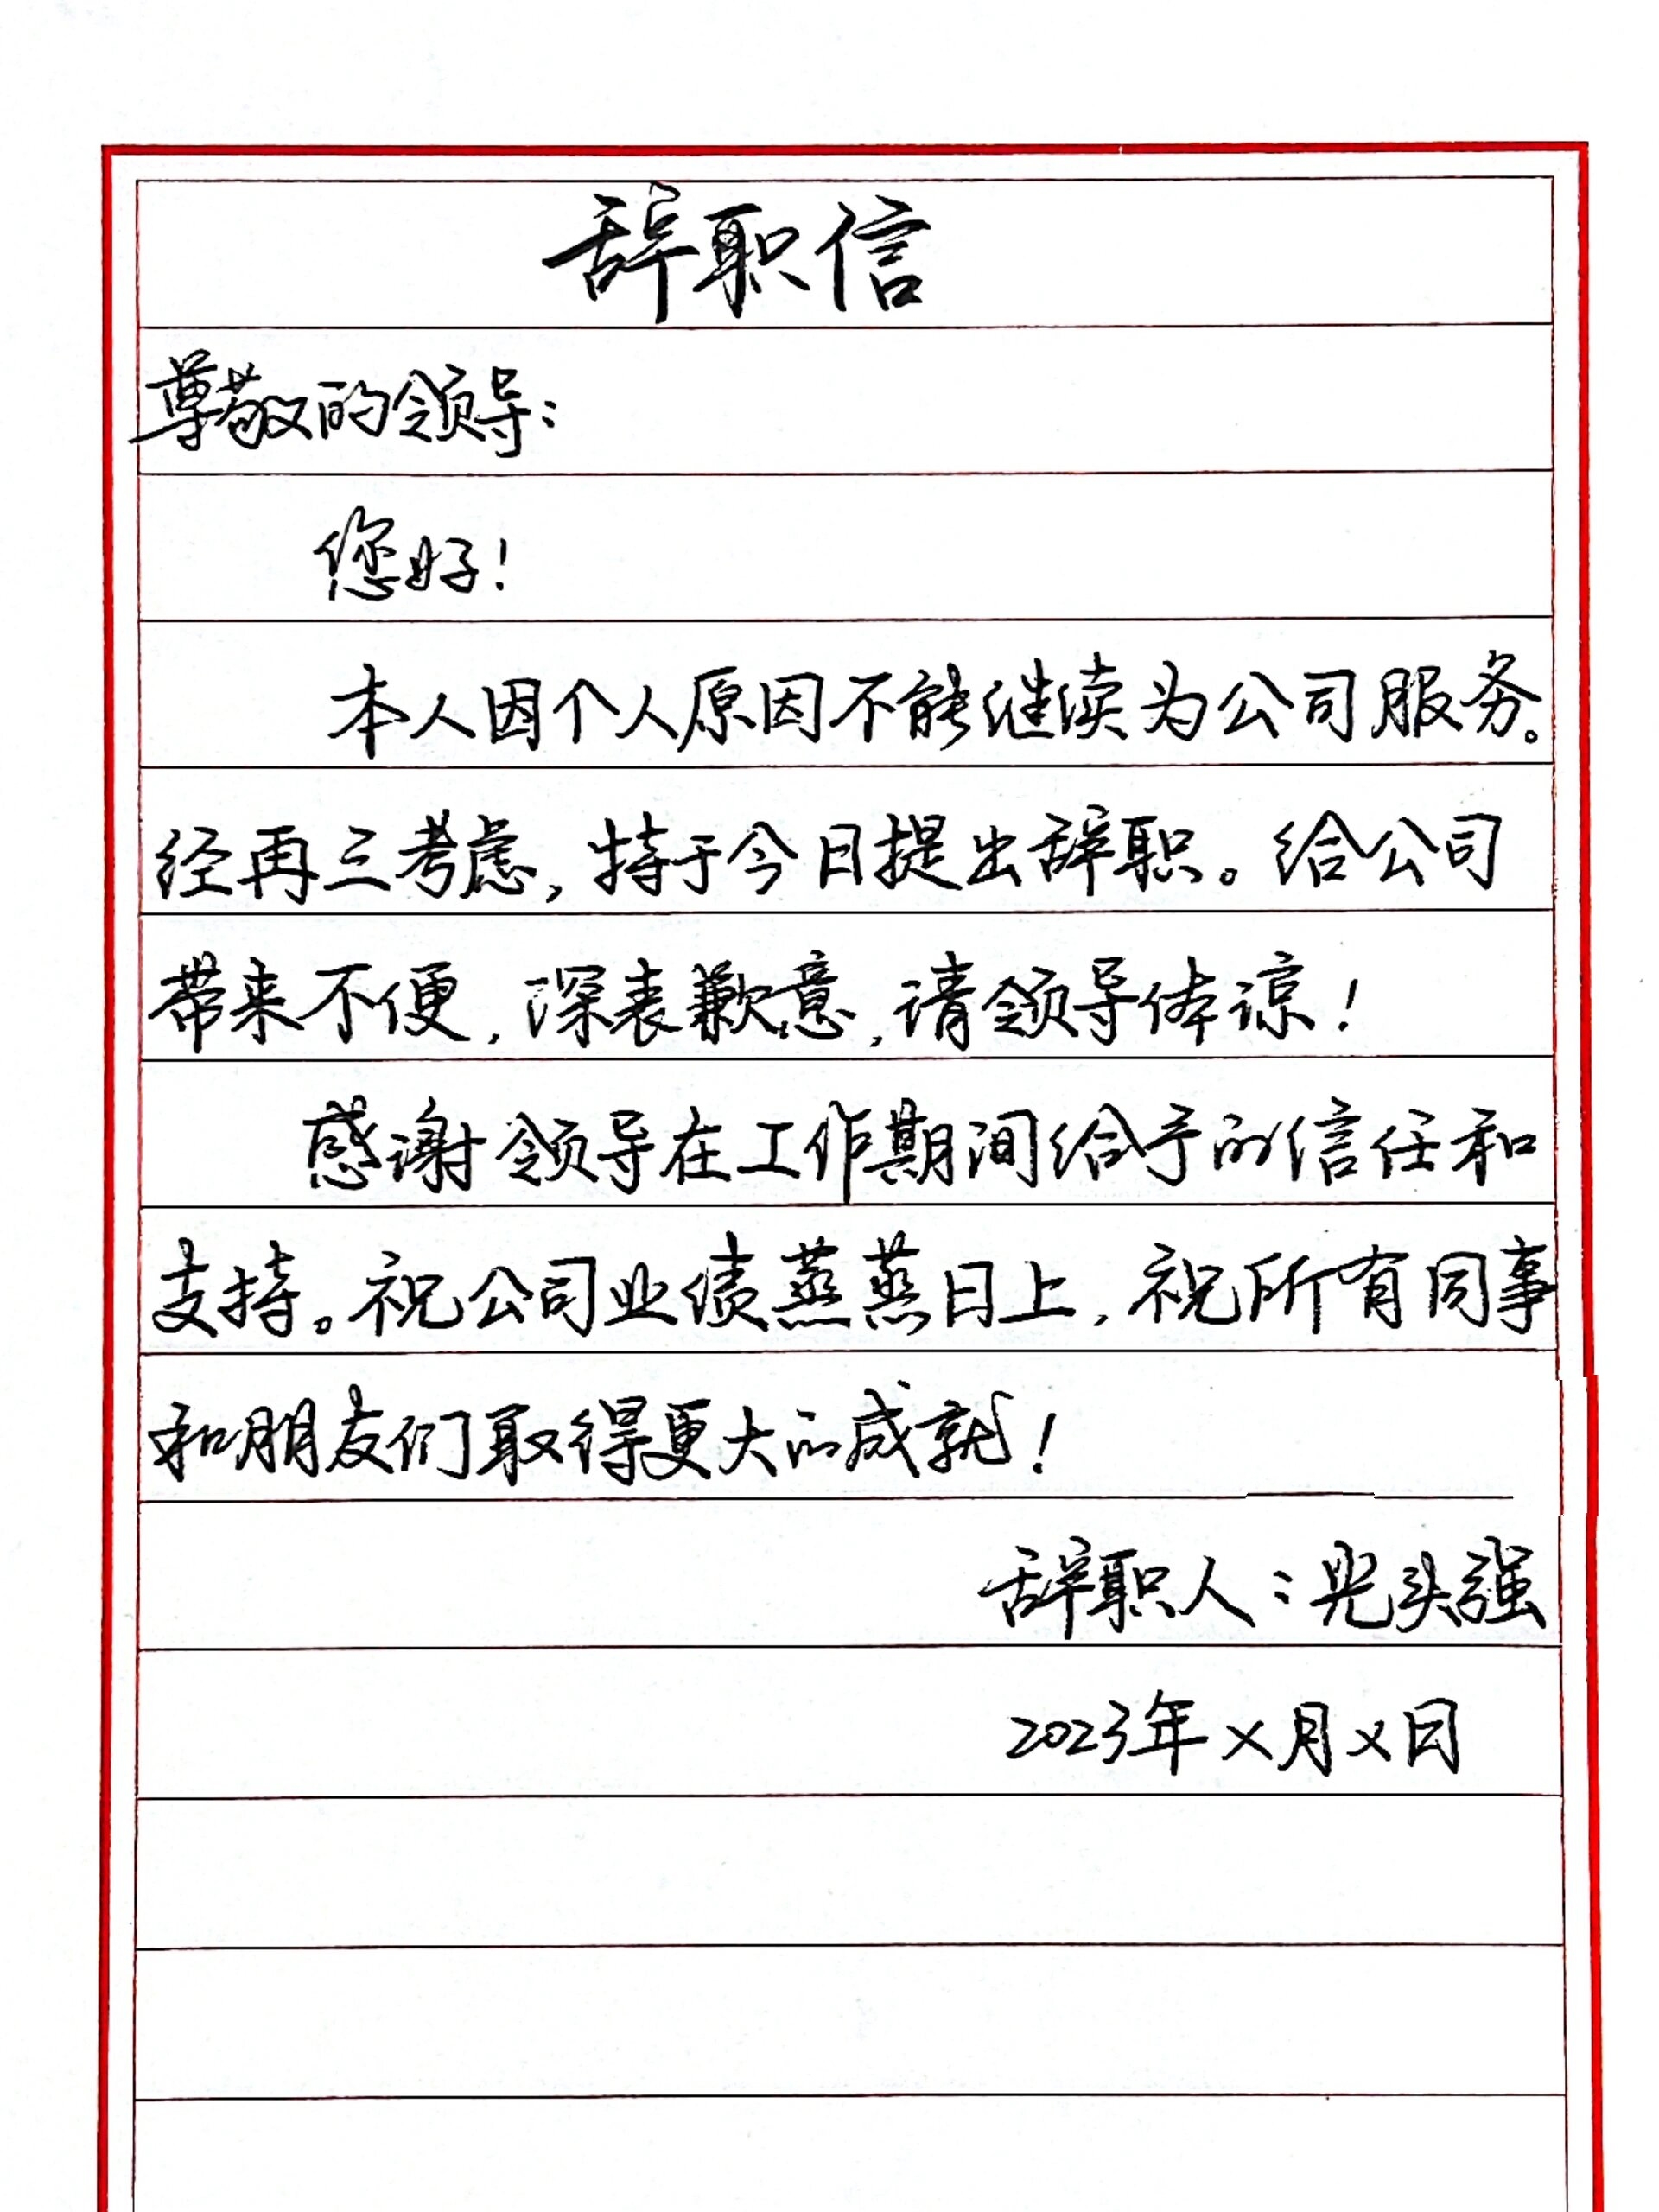 辞职信
尊敬的领导：
您好！
本人因个人原因不能继续为公司服务。
经再三考虑，特于今日提出辞职。给公司
带来不便，深表歉意，请领导体谅！
感谢领导在工作期间给予的信任和
支持。祝公司业绩蒸蒸日上，祝所有同事
和朋友们取得更大的成就！
辞职人：光头强
2023年X月X日